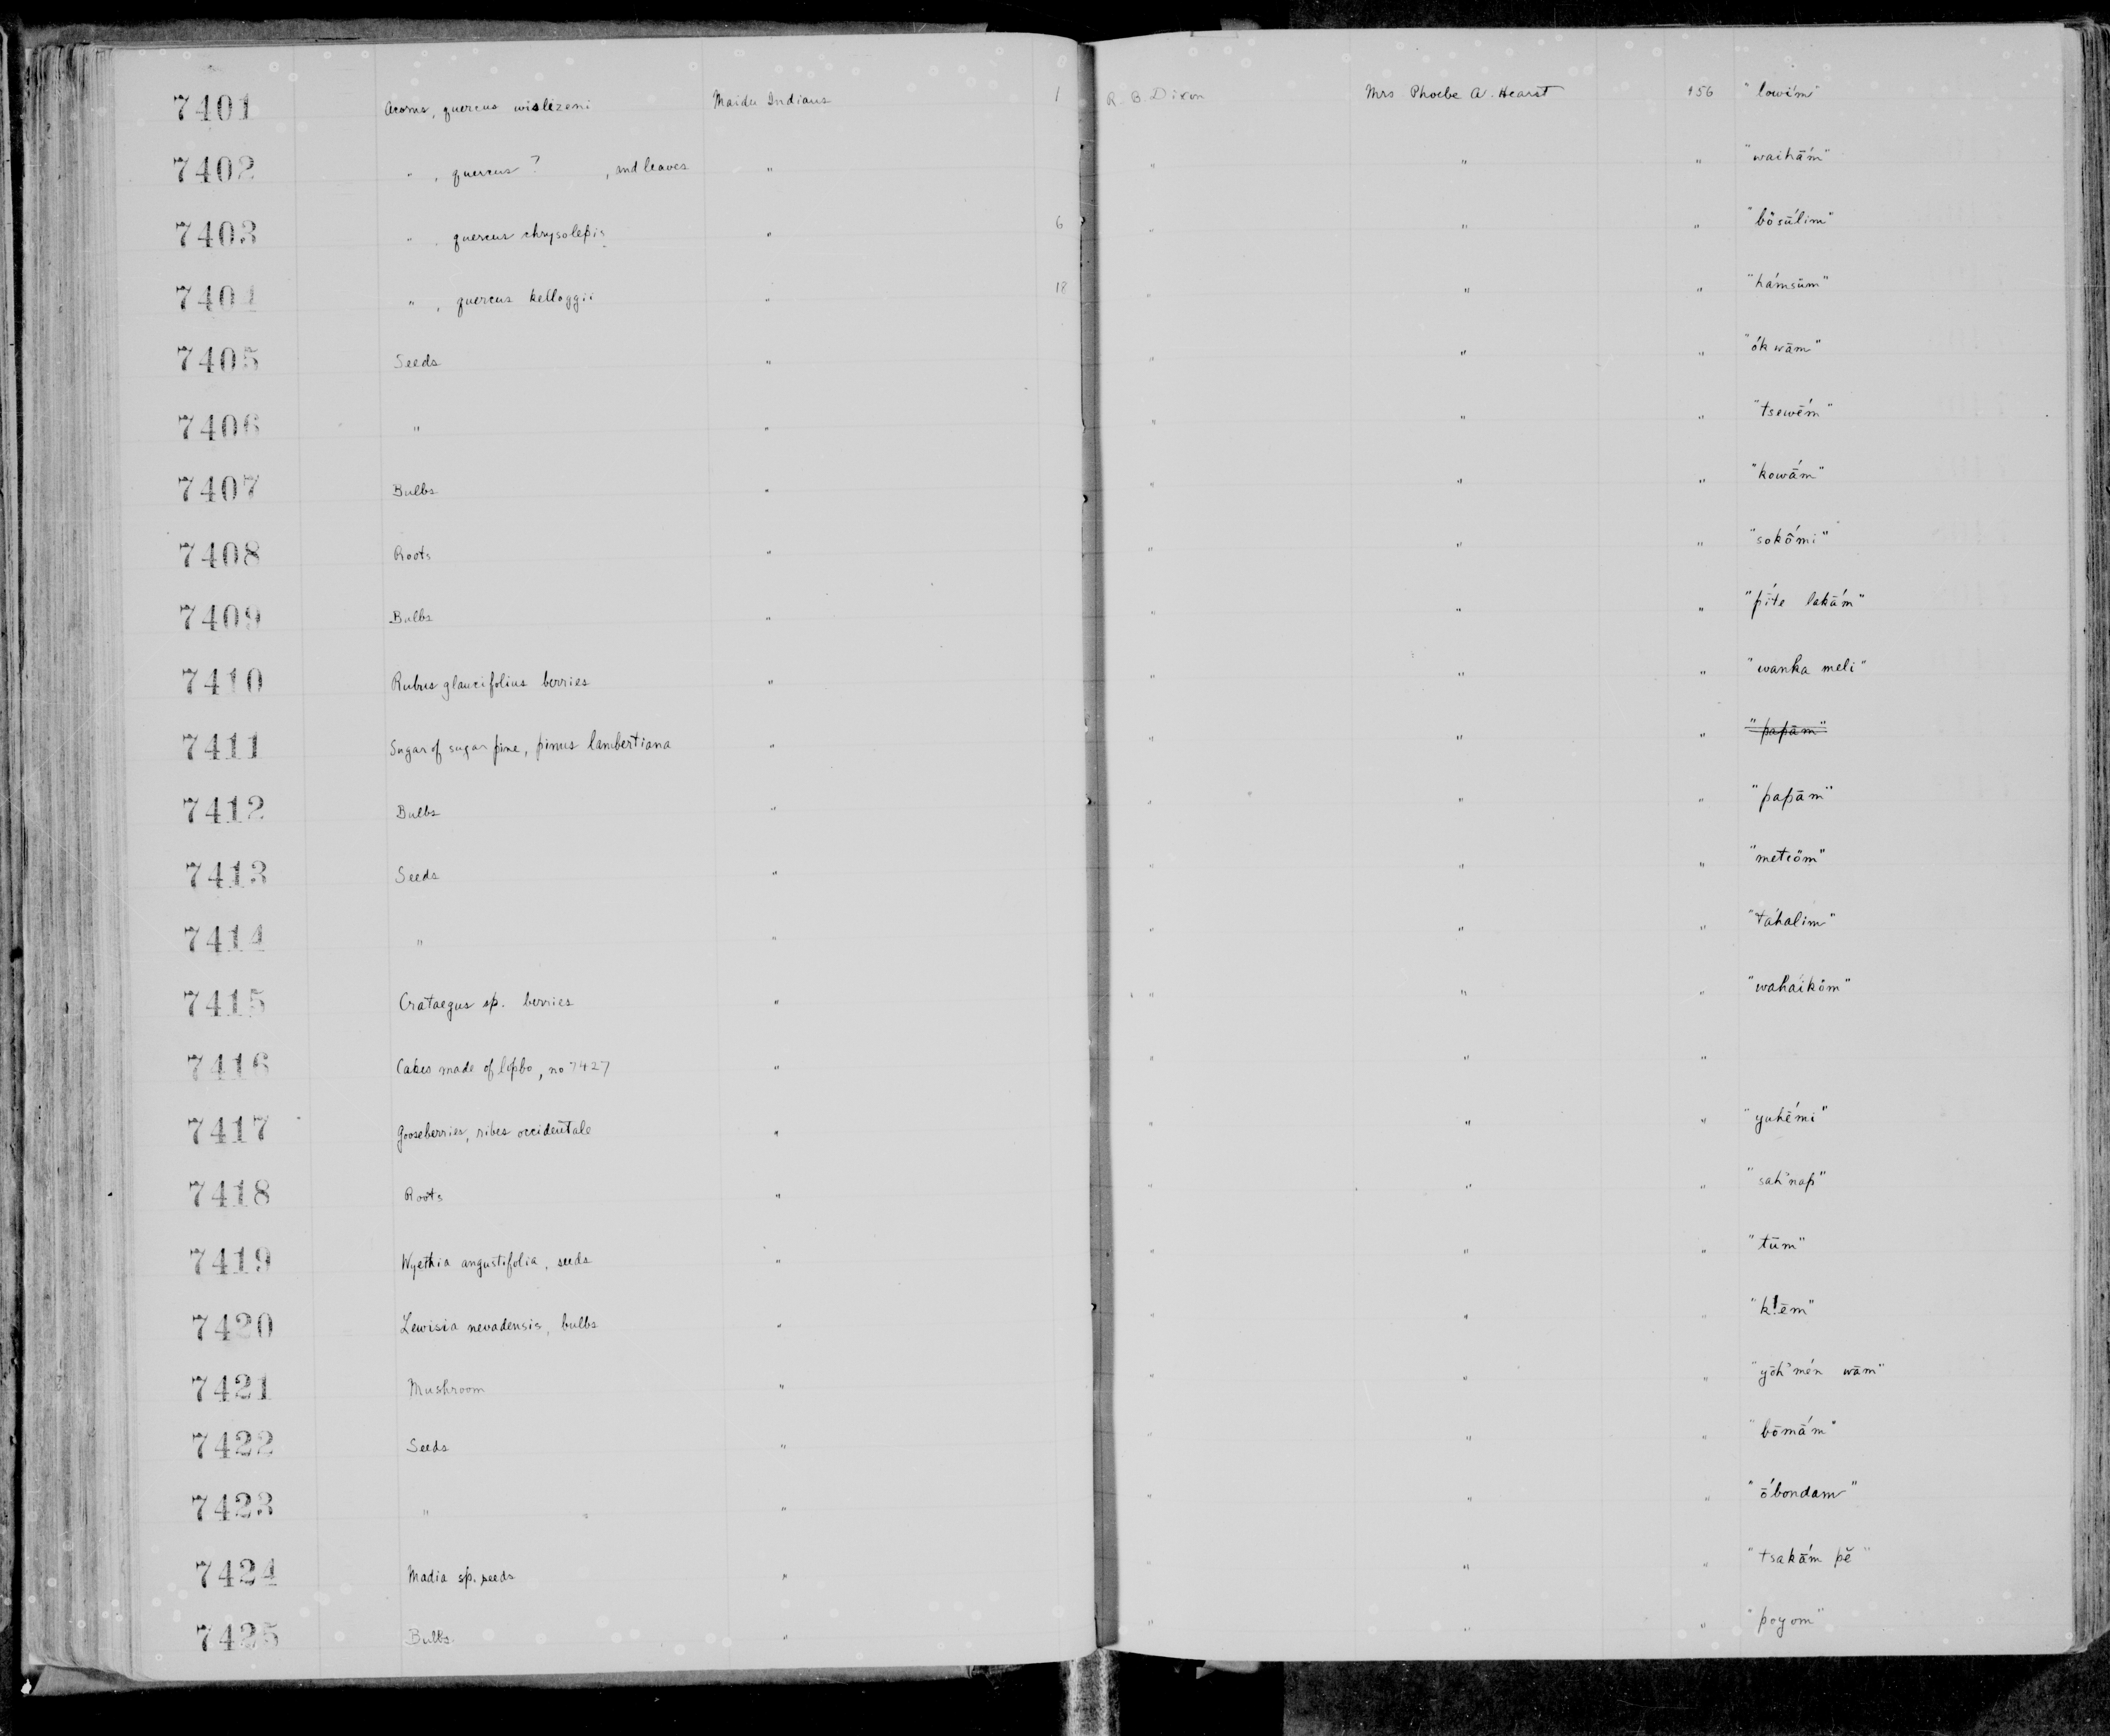 7401 Acorns, quercus wislizeni Maidu Indians 1 R. B. Dixon Mrs Phoebe A. Hearst 156 "lowím"
7402 " , quercus ? , and leaves " " " " "waihā́m"
7403 " , quercus chrysolepis " 6 " " " "bōsū́lim"
7404 " , quercus kelloggii " 18 " " " "hámsūm"
7405 Seeds " " " " "ókwām"
7406 " " " " " "tsewḗm"
7407 Bulbs " " " " "kowā́m"
7408 Roots " " " " "sokṓmi"
7409 Bulbs " " " " "pīte lakā́m"
7410 Rubus glaucifolius berries " " " " "wanka meli"
7411 Sugar of sugar pine, pinus lambertiana " " " " "papām"
7412 Bulbs " " " " "papām"
7413 Seeds " " " "
7414 " " " " " "táhalim"
7415 Crataegus sp. berries " " " " "waháiköm"
7416 Cakes made of lopbo, no 7427 " " " "
7417 Gooseberries, ribes occidentale " " " " "yuhḗmi"
7418 Roots " " " " "sahʼnap"
7419 Wyethia angustifolia, seeds " " " " "tūm"
7420 Lewisia nevadensis, bulbs " " " " "k!ēm"
7421 Mushroom " " " " "yōhʼmén wām"
7422 Seeds " " " " "bōmā́m"
7423 " " " " " "ṓbondam"
7424 Madia sp. seeds " " " " "tsakā́m pĕ"
7425 Bulbs " " " " "poyom"